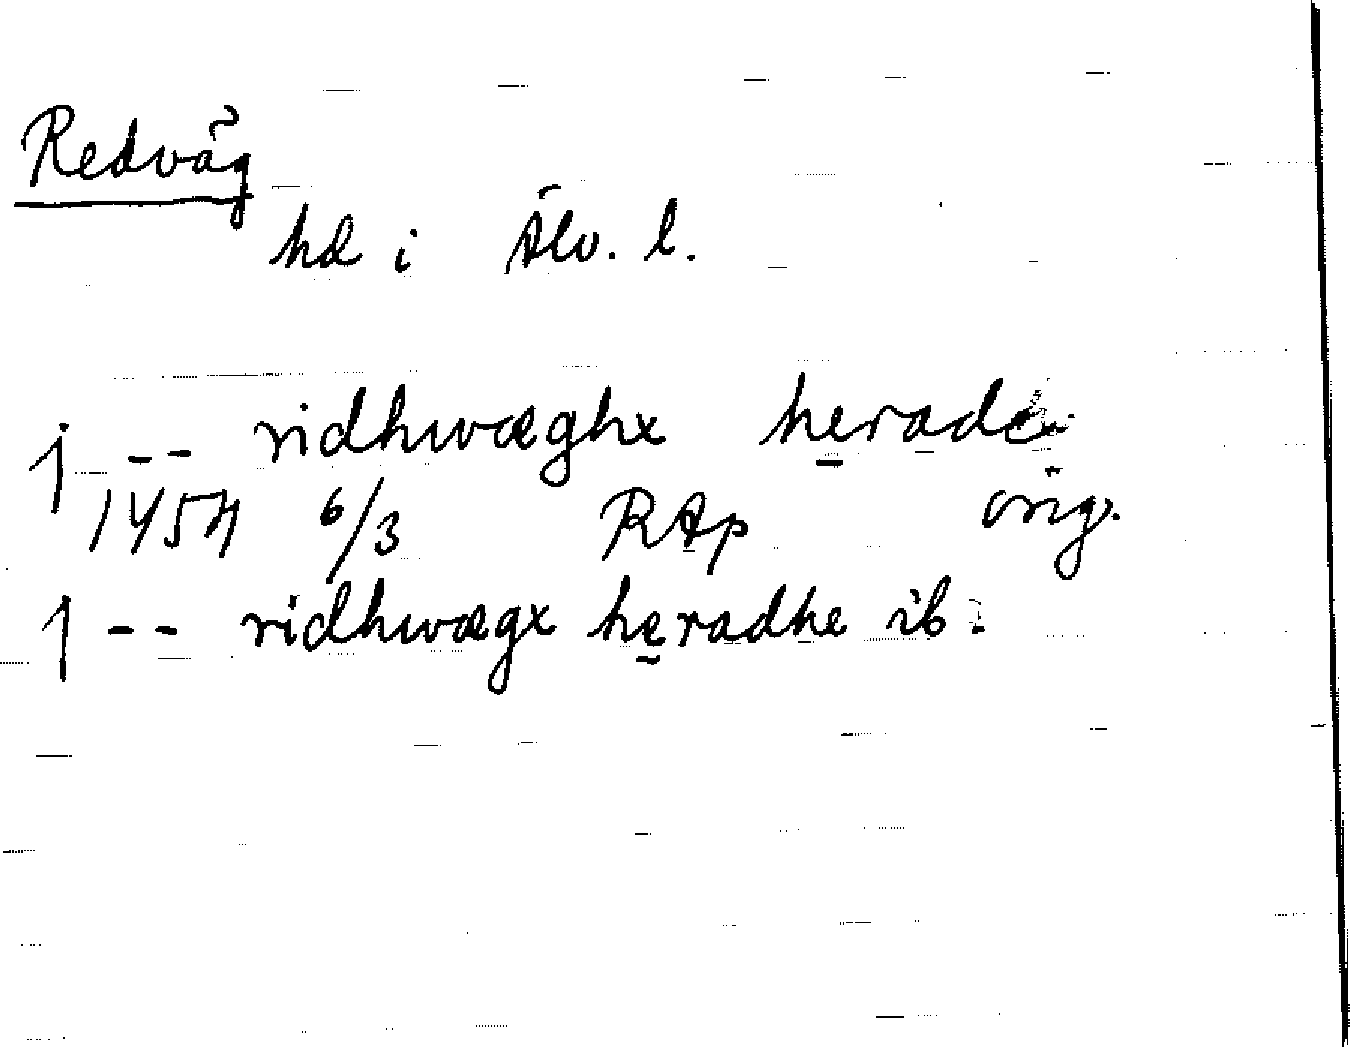 Redväg
hd i Älv. l.
j -- ridhwæghx herade
1454 6/3 RAp orig.
j -- ridhwægx heradhe ib.